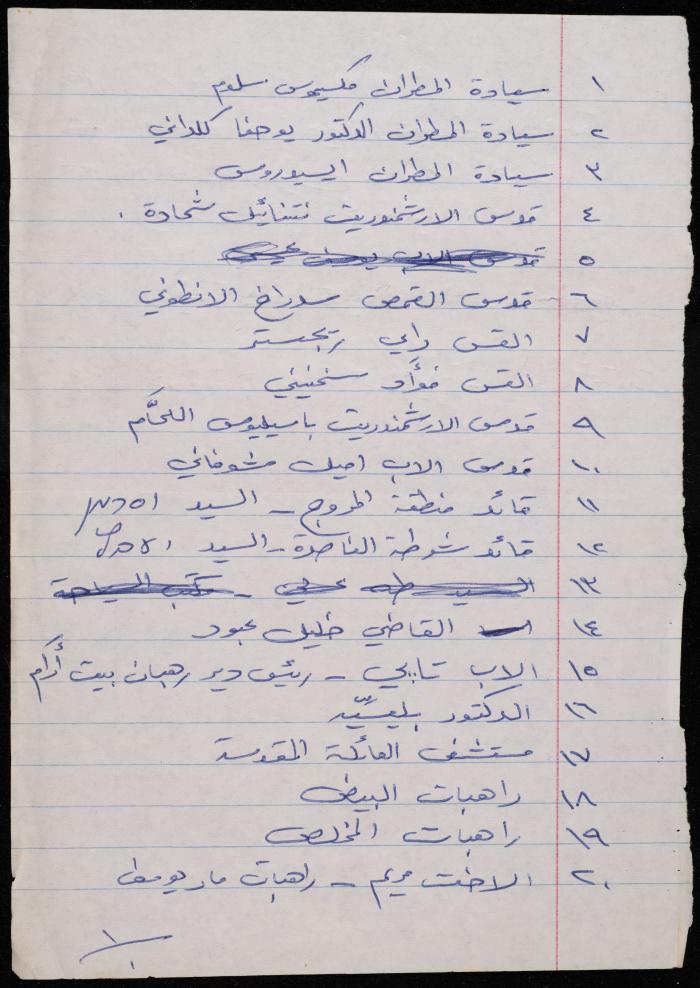 ١ سيادة المطران مكسيموس سلوم
٢ سيادة المطران الدكتور يوحنا كلداني
٣ سيادة المطران ايسيوروس
٤ قدس الارشمندريت نتنائيل شحادة .
٥ قدس الاب يوسف عيسى
٦ - قدس القمص سدراخ الانطوني
٧ القس راي رجستر
٨ القس فؤاد سخنيني
٩ قدس الارشمندريت باسيليوس اللحّام
١٠ قدس الاب اميل شوفاني
١١ قائد منطقة المروج - السيد
١٢ قائد شرطة الناصرة - السيد
١٣ السيد طه علي - مكتب السياحة
١٤ القاضي خليل عبود
١٥ الاب تابي - رئيس دير رهبان بيت أرّام
١٦ الدكتور
١٧ مستشفى العائلة المقدسة
١٨ راهبات البيض
١٩ راهبات المخلص
٢٠ الاخت مريم - راهبات مار يوسف
١